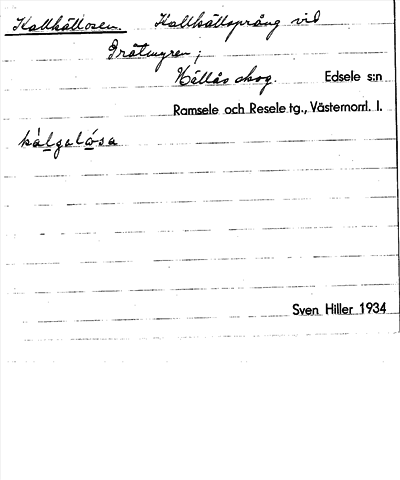 Kallkällosen. Kallkällsprång vid
Gråtmyren;
Hällås skog. Edsele s:n
Ramsele och Resele tg., Västernorrl. l.
kálgalósa
Sven Hiller 1934